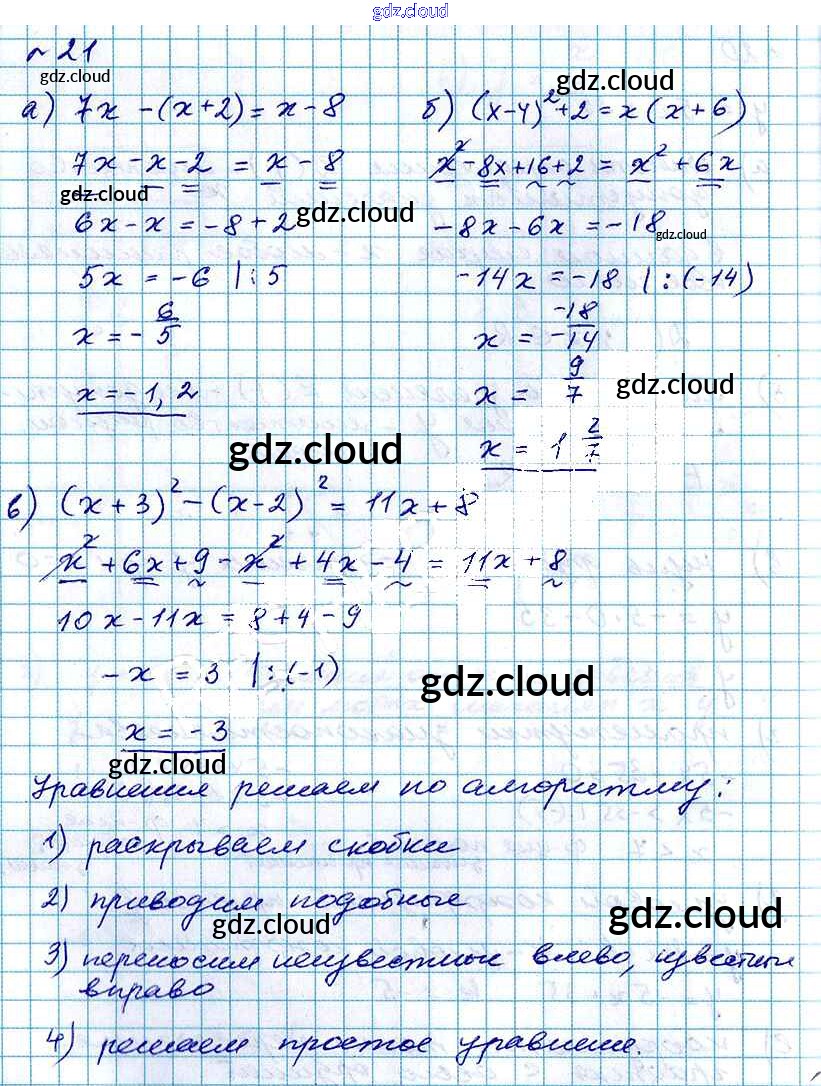 gdz.cloud
№21
gdz.cloud
а) 7x - (x+2) = x - 8
7x - x - 2 = x - 8
gdz.cloud
6x - x = -8 + 2
gdz.cloud
5x = -6 | : 5
x = - 6/5
x = -1,2
gdz.cloud
б) (x-4)² + 2 = x(x+6)
x² - 8x + 16 + 2 = x² + 6x
-8x - 6x = -18
gdz.cloud
-14x = -18 | : (-14)
x = - -18/14
x = 9/7
gdz.cloud
x = 1 2/7
в) (x+3)² - (x-2)² = 11x + 8
x² + 6x + 9 - x² + 4x - 4 = 11x + 8
10x - 11x = 8 + 4 - 9
-x = 3 | : (-1)
gdz.cloud
x = -3
gdz.cloud
Уравнения решаем по алгоритму:
1) раскрываем скобки
2) приводим подобные
gdz.cloud
gdz.cloud
3) переносим неизвестные влево, известные
вправо
4) решаем простое уравнение.